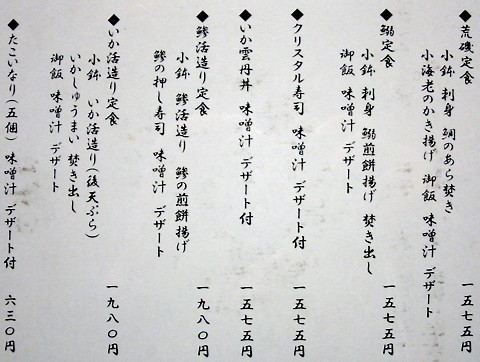 ◆荒磯定食
小鉢 刺身 鯛のあら焚き
小海老のかき揚げ 御飯 味噌汁 デザート
一五七五円
◆鰯定食
小鉢 刺身 鰯煎餅揚げ 焚き出し
御飯 味噌汁 デザート
一五七五円
◆クリスタル寿司 味噌汁 デザート付 一五七五円
◆いか雲丹丼 味噌汁 デザート付 一五七五円
◆鯵活造り定食
小鉢 鯵活造り 鯵の煎餅揚げ
鯵の押し寿司 味噌汁 デザート
一九八〇円
◆いか活造り定食
小鉢 いか活造り(後天ぷら)
いかしゅうまい 焚き出し
御飯 味噌汁 デザート
一九八〇円
◆たこいなり(五個) 味噌汁 デザート付 六三〇円